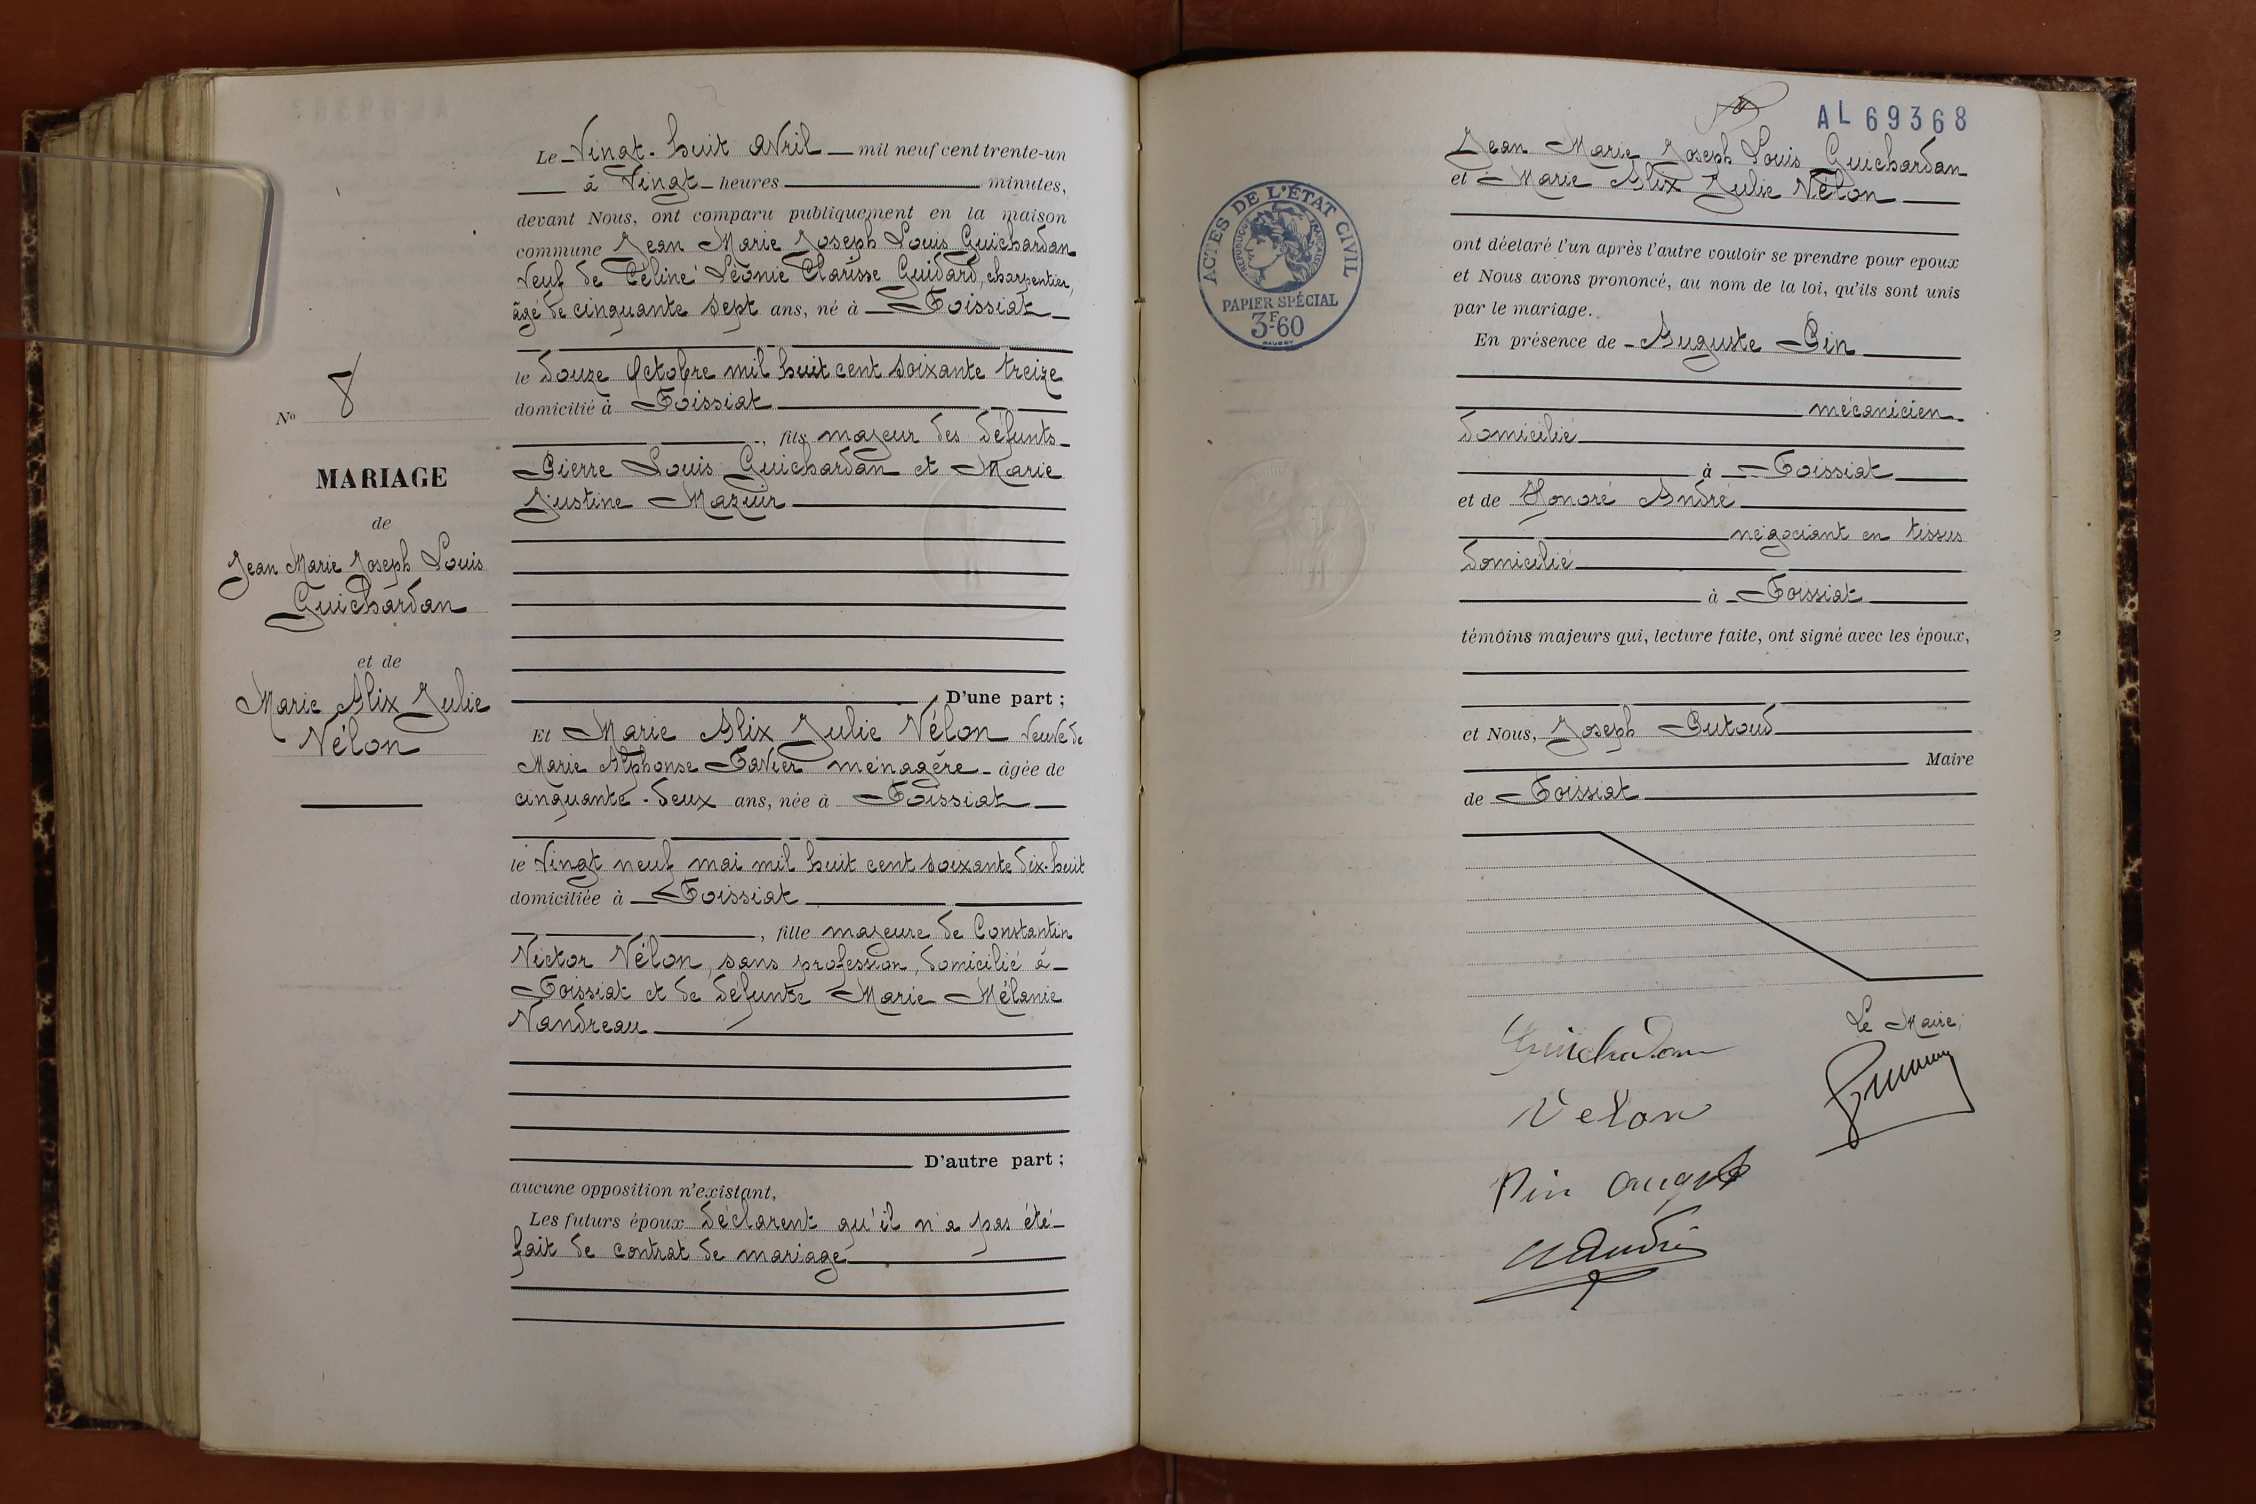 Le Vingt-huit avril mil neuf cent trente-un
à Vingt heures minutes,
devant Nous, ont comparu publiquement en la maison
commune Jean Marie Joseph Louis Guichardan
Veuf de Céline Léonie Clarisse Guidard, charpentier,
âgé de cinquante sept ans, né à Foissiat
le douze Octobre mil huit cent soixante treize
domicilié à Foissiat
, fils majeur des défunts
Pierre Louis Guichardan et Marie
Justine Mazuir
D'une part ;
Et Marie Alix Julie Vélon Veuve de
Marie Alphonse Favier ménagère âgée de
cinquante-deux ans, née à Foissiat
le Vingt neuf mai mil huit cent soixante dix-huit
domiciliée à Foissiat
, fille majeure de Constantin
Victor Vélon, sans profession, domicilié à
Foissiat et de défunte Marie Mélanie
Vandreau
D'autre part ;
aucune opposition n'existant,
Les futurs époux déclarent qu'il n'a pas été
fait de contrat de mariage
No 8
MARIAGE
de
Jean Marie Joseph Louis
Guichardan
et de
Marie Alix Julie
Vélon
AL 69368
Jean Marie Joseph Louis Guichardan
et Marie Alix Julie Vélon
ont déclaré l'un après l'autre vouloir se prendre pour epoux
et Nous avons prononcé, au nom de la loi, qu'ils sont unis
par le mariage.
En présence de Auguste Pin
mécanicien
domicilié
à Foissiat
et de Honoré André
négociant en tissus
domicilié
à Foissiat
témoins majeurs qui, lecture faite, ont signé avec les époux,
et Nous, Joseph Putoud
Maire
de Foissiat
Le Maire,
Guichardan
Velon
Pin August
André
ACTES DE L'ÉTAT CIVIL
RÉPUBLIQUE FRANÇAISE
PAPIER SPÉCIAL
3F.60